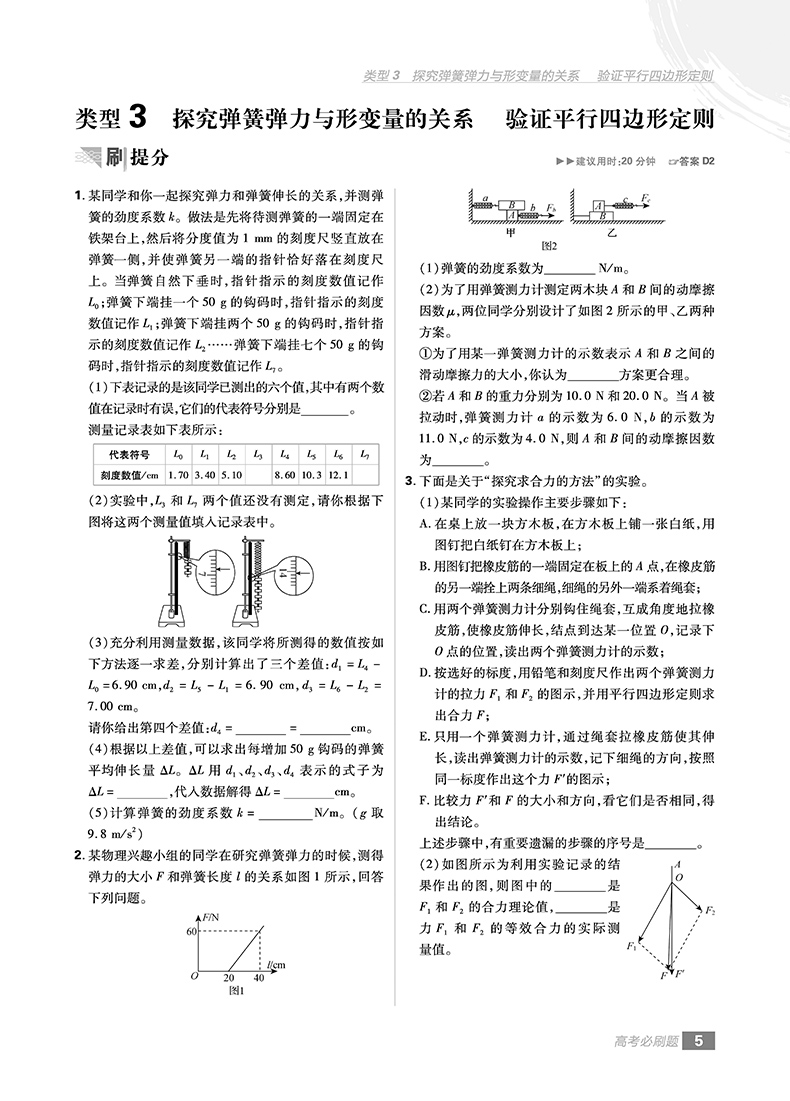 类型 3 探究弹簧弹力与形变量的关系 验证平行四边形定则
类型 3 探究弹簧弹力与形变量的关系 验证平行四边形定则
刷提分
▶▶建议用时:20 分钟 ☞答案 D2
1. 某同学和你一起探究弹力和弹簧伸长的关系,并测弹
簧的劲度系数 k。做法是先将待测弹簧的一端固定在
铁架台上,然后将分度值为 1 mm 的刻度尺竖直放在
弹簧一侧,并使弹簧另一端的指针恰好落在刻度尺
上。当弹簧自然下垂时,指针指示的刻度数值记作
L₀;弹簧下端挂一个 50 g 的钩码时,指针指示的刻度
数值记作 L₁;弹簧下端挂两个 50 g 的钩码时,指针指
示的刻度数值记作 L₂……弹簧下端挂七个 50 g 的钩
码时,指针指示的刻度数值记作 L₇。
(1)下表记录的是该同学已测出的六个值,其中有两个数
值在记录时有误,它们的代表符号分别是________。
测量记录表如下表所示:
代表符号 L₀ L₁ L₂ L₃ L₄ L₅ L₆ L₇
刻度数值/cm 1.70 3.40 5.10 8.60 10.3 12.1
(2)实验中,L₃ 和 L₇ 两个值还没有测定,请你根据下
图将这两个测量值填入记录表中。
7
14
(3)充分利用测量数据,该同学将所测得的数值按如
下方法逐一求差,分别计算出了三个差值:d₁ = L₄ −
L₀ =6.90 cm,d₂ = L₅ − L₁ = 6. 90 cm, d₃ = L₆ − L₂ =
7.00 cm。
请你给出第四个差值:d₄ = ________ = ________cm。
(4)根据以上差值,可以求出每增加 50 g 钩码的弹簧
平均伸长量 ΔL。ΔL 用 d₁、d₂、d₃、d₄ 表示的式子为
ΔL = ________,代入数据解得 ΔL = ________cm。
(5)计算弹簧的劲度系数 k = ________N/m。(g 取
9.8 m/s²)
2. 某物理兴趣小组的同学在研究弹簧弹力的时候,测得
弹力的大小 F 和弹簧长度 l 的关系如图 1 所示,回答
下列问题。
F/N
60
l/cm
O 20 40
图1
a B A b F_b A c F_c B
甲 乙
图2
(1)弹簧的劲度系数为________ N/m。
(2)为了用弹簧测力计测定两木块 A 和 B 间的动摩擦
因数 μ,两位同学分别设计了如图 2 所示的甲、乙两种
方案。
①为了用某一弹簧测力计的示数表示 A 和 B 之间的
滑动摩擦力的大小,你认为________方案更合理。
②若 A 和 B 的重力分别为 10. 0 N 和 20. 0 N。当 A 被
拉动时,弹簧测力计 a 的示数为 6. 0 N,b 的示数为
11. 0 N,c 的示数为 4. 0 N,则 A 和 B 间的动摩擦因数
为________。
3. 下面是关于“探究求合力的方法”的实验。
(1)某同学的实验操作主要步骤如下:
A. 在桌上放一块方木板,在方木板上铺一张白纸,用
图钉把白纸钉在方木板上;
B. 用图钉把橡皮筋的一端固定在板上的 A 点,在橡皮筋
的另一端拴上两条细绳,细绳的另外一端系着绳套;
C. 用两个弹簧测力计分别钩住绳套,互成角度地拉橡
皮筋,使橡皮筋伸长,结点到达某一位置 O,记录下
O 点的位置,读出两个弹簧测力计的示数;
D. 按选好的标度,用铅笔和刻度尺作出两个弹簧测力
计的拉力 F₁ 和 F₂ 的图示,并用平行四边形定则求
出合力 F;
E. 只用一个弹簧测力计,通过绳套拉橡皮筋使其伸
长,读出弹簧测力计的示数,记下细绳的方向,按照
同一标度作出这个力 F′的图示;
F. 比较 F′和 F 的大小和方向,看它们是否相同,得
出结论。
上述步骤中,有重要遗漏的步骤的序号是________。
(2)如图所示为利用实验记录的结
果作出的图,则图中的________是
F₁ 和 F₂ 的合力理论值,________是
力 F₁ 和 F₂ 的等效合力的实际测
量值。
A
O
F₂
F₁
F F′
高考必刷题 5